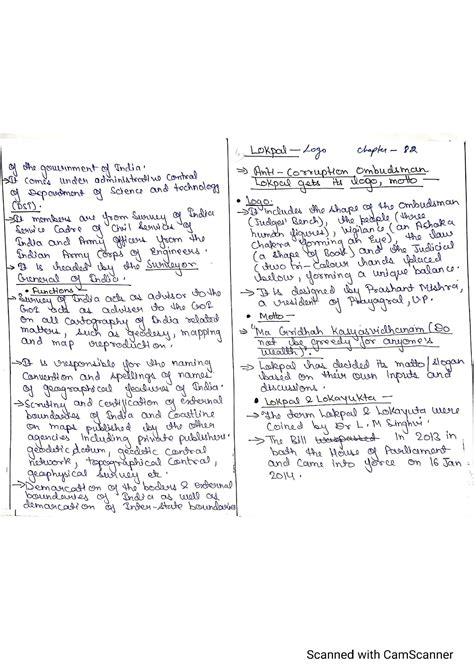 of the government of India.
→ It comes under administrative control
of Department of Science and technology
(DST).
→ It members are from Survey of India
Service Cadre of Civil Services of
India and Army Officers from the
Indian Army Corps of Engineers.
→ It is headed by the Surveyor
General of India.
• Functions —
→ Survey of India acts as advisor to the
GOI acts as adviser to the GOI
on all Cartography of India related
matters, such as geodesy, mapping
and map reproduction.
→ It is responsible for the naming
Convention and spellings of names
of geographical features of India.
→ Scrutiny and certification of external
boundaries of India and Coastline
on maps published by the other
agencies Including private publishers.
geodetic datum, geodetic control
network, topographical control,
geophysical survey etc.
→ Demarcation of the boders & external
boundaries of India as well as
demarcation of Inter-State boundaries
Lokpal — Logo Chapter - 82
→ Anti - Corruption Ombudsman
Lokpal gets its logo, motto
• Logo:
→ It includes the shape of the Ombudsman
(Judges' Bench), the people (three
human figures), vigilance (an Ashoka
Chakra forming an Eye), the law
(a shape of Book) and the Judicial
(two tri-Colour hands placed
below, forming a unique balance.
→ It is designed by Prashant Mishra,
a resident of Prayagraj, U.P.
• Motto —
→ "Ma Gridhah Kasyasvidhanam (Do
not be greedy for anyone's
wealth)".
→ Lokpal has decided its motto/slogan
based on their own Inputs and
discussions.
• Lokpal & Lokayukta —
→ The term Lokpal & Lokayuta were
coined by Dr L.M Singhvi.
→ The Bill In 2013 in
both the House of Parliament
and came into force on 16 Jan
2014.
Scanned with CamScanner